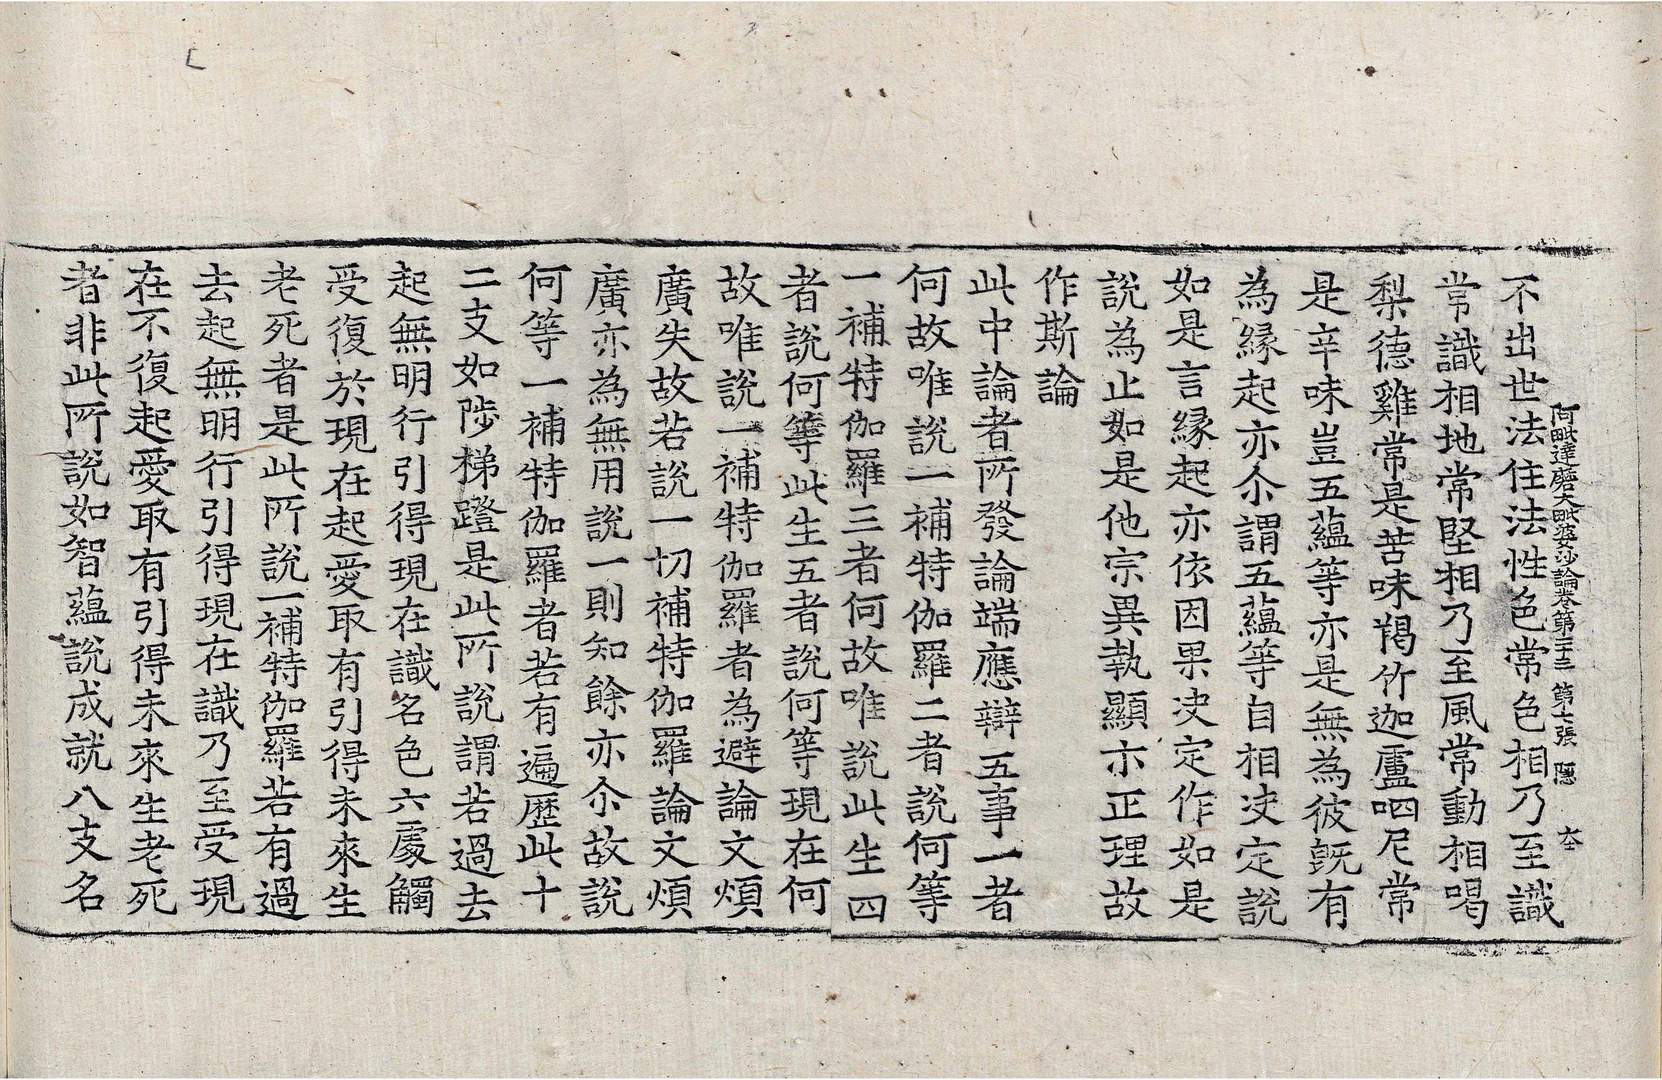 阿毗達磨大毗婆沙論卷第二十三　第七張　隱
不出世法住法性色常色相乃至識
常識相地常堅相乃至風常動相喝
梨德雞常是苦味羯竹迦盧呬尼常
是辛味豈五蘊等亦是無為彼旣有
為緣起亦尒謂五蘊等自相决定說
如是言緣起亦依因果决定作如是
說為止如是他宗異執顯示正理故
作斯論
此中論者所發論端應辯五事一者
何故唯說一補特伽羅二者說何等
一補特伽羅三者何故唯說此生四
者說何等此生五者說何等現在何
故唯說一補特伽羅者為避論文煩
廣失故若說一切補特伽羅論文煩
廣亦為無用說一則知餘亦尒故說
何等一補特伽羅者若有遍歷此十
二支如陟梯蹬是此所說謂若過去
起無明行引得現在識名色六處觸
受復於現在起愛取有引得未來生
老死者是此所說一補特伽羅若有過
去起無明行引得現在識乃至受現
在不復起愛取有引得未來生老死
者非此所說如智蘊說成就八支名